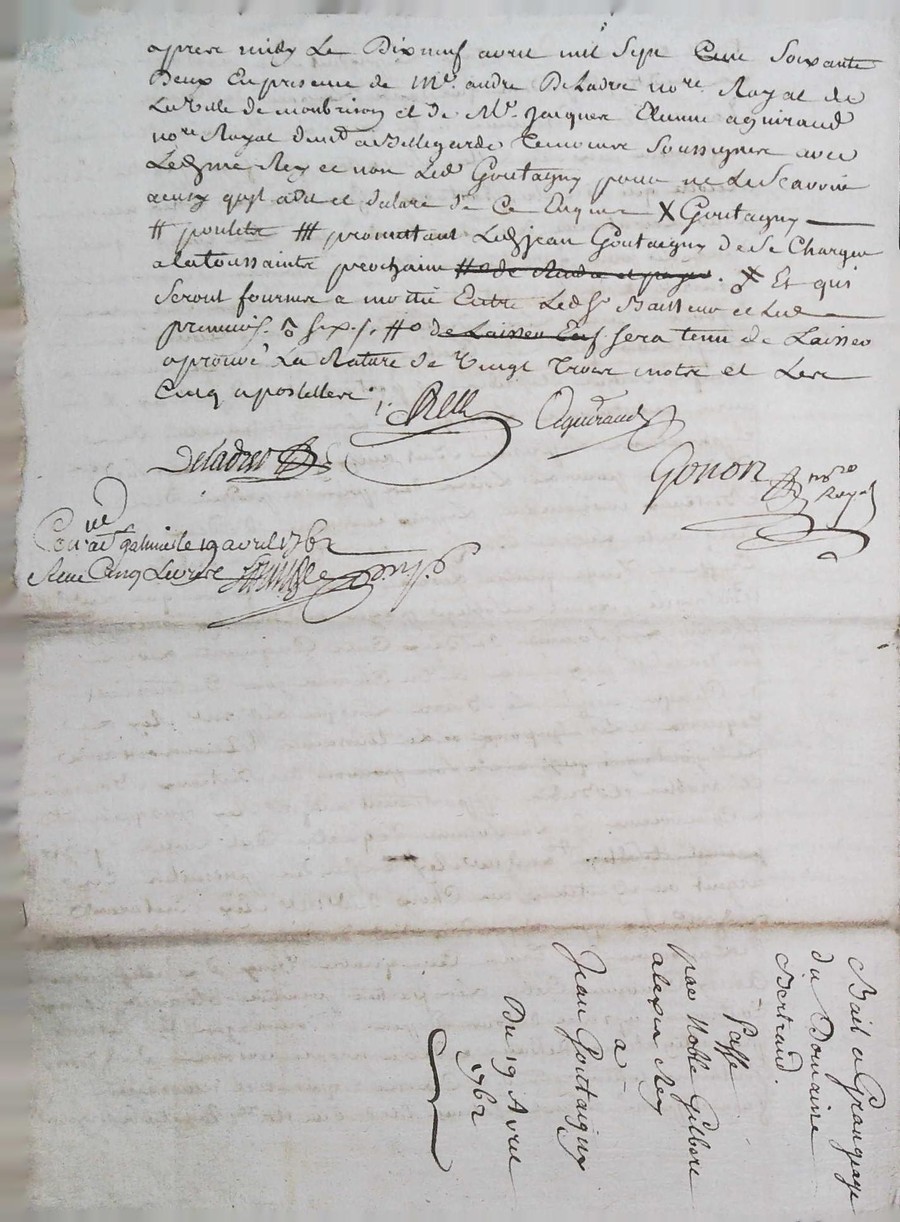 apres midy Le Dixneuf avril mil Sept Cent Soixante
Deux En presence de Me. andré DeLadret nore Royal de
La ville de montbrison et de Mr. Jacques Etienne aguiraud
nore Royal de a Bellegarde Temoins Soussignés avec
Rey et non Led Goutagny pour ne Le Scavoir
qujl a dit et declaré de Ce Enquis X Goutagny
# poulets ## promettant Led jean Goutagny de Se Charger
a la toussaintz prochain . X Et qui
Seront fournis a moitié Entre Led Sr Bailleur et Led
preneur. 8 six. #o de Laisser En sera tenu de Laisser
aprouvé La Rature de Vingt Trois motz et Les
Cinq apostilles
Rey Aguiraud
Deladret
Gonon nore Royal
Con galmier le 19 avril 1762
Reçu Cinq Livres
Bail a Grangeage
du Domaine
Bertrand.
Passé
par Noble Gilbert
alexis Rey
a
Jean Gouttagny
Du 19 Avril
1762